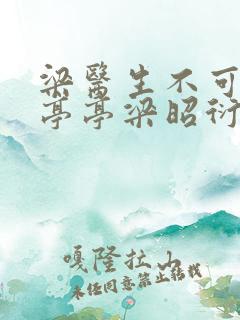 梁醫生不可
亭亭梁昭衍
嘎隆拉山
未经同意禁止转载